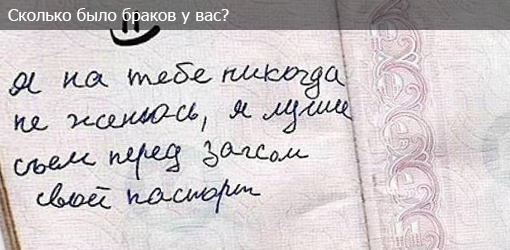 Сколько было браков у вас?
я на тебе никогда
не женюсь, я лучше
съем перед загсом
свой паспорт